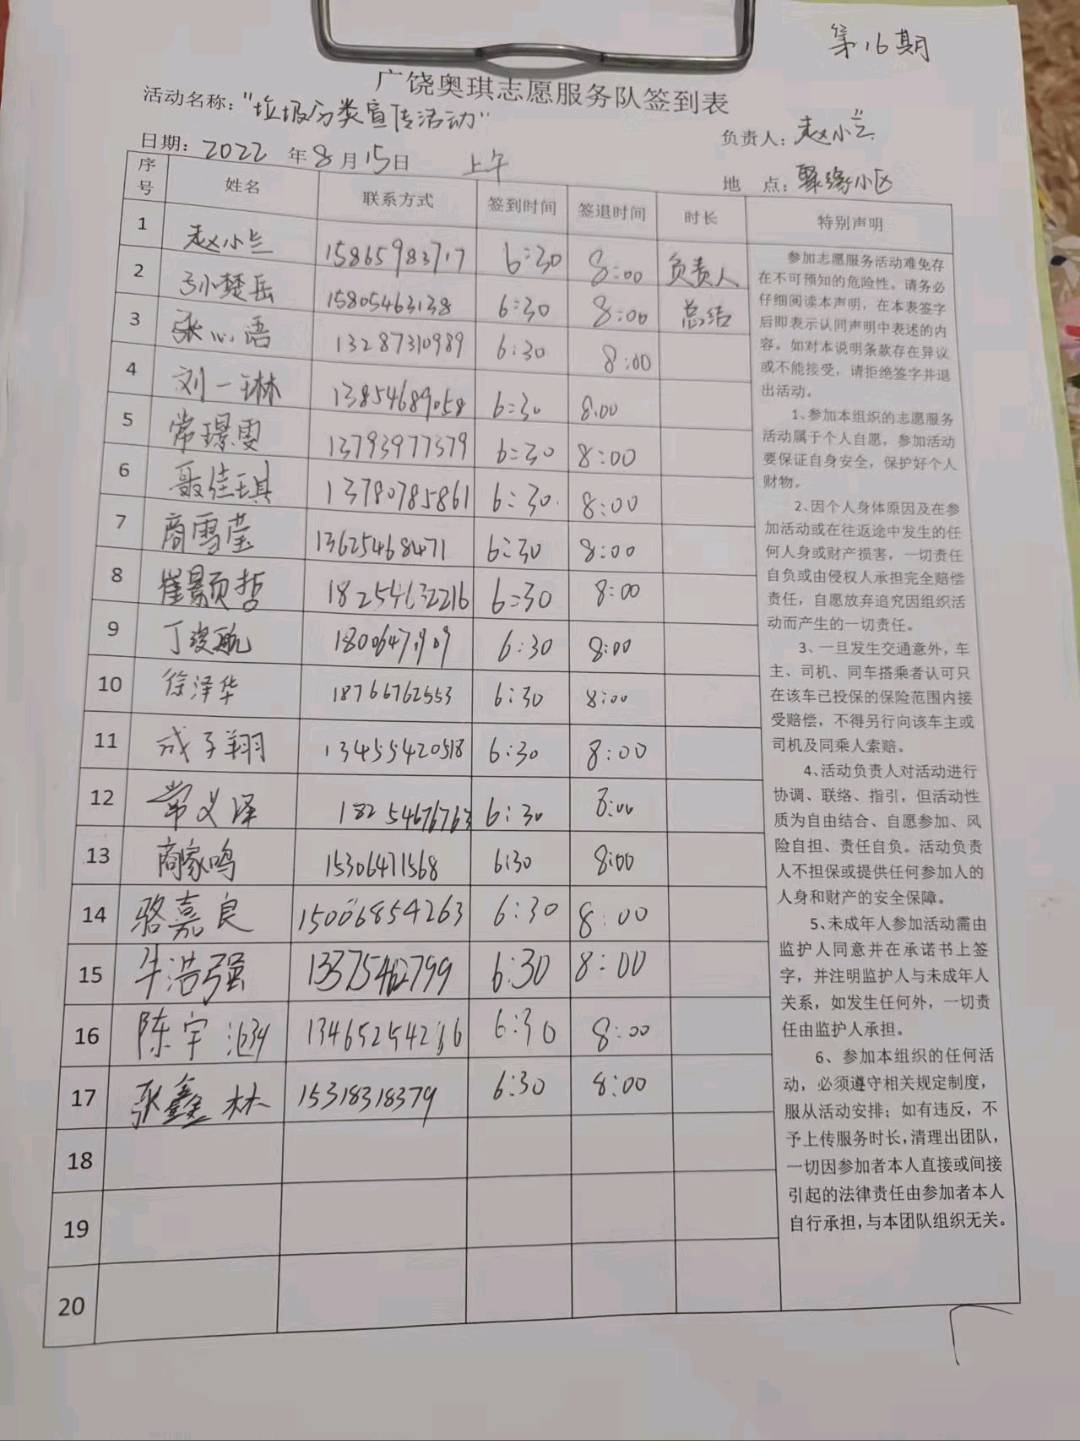 第16期
广饶奥琪志愿服务队签到表
活动名称："垃圾分类宣传活动"
负责人：赵小兰
日期：2022年8月15日 上午
地 点：聚缘小区
序号 姓名 联系方式 签到时间 签退时间 时长 特别声明
1 赵小兰 15865983717 6:30 8:00 负责人
2 孙楚岳 15805463138 6:30 8:00 总结
3 张心语 13287310989 6:30 8:00
4 刘一琳 13854689058 6:30 8:00
5 常璟雯 13793977379 6:30 8:00
6 聂佳琪 13780785861 6:30 8:00
7 商雪莹 13625468471 6:30 8:00
8 崔颢哲 18254632216 6:30 8:00
9 丁浚航 6:30 8:00
10 徐泽华 18766762553 6:30 8:00
11 成子翔 13455420518 6:30 8:00
12 常义泽 18254676763 6:30 8:00
13 商家鸣 15306471568 6:30 8:00
14 骆嘉良 15006854263 6:30 8:00
15 牛浩强 6:30 8:00
16 陈宇 6:30 8:00
17 张鑫林 15318318379 6:30 8:00
18
19
20
参加志愿服务活动难免存
在不可预知的危险性。请务必
仔细阅读本声明，在本表签字
后即表示认同声明中表述的内
容。如对本说明条款存在异议
或不能接受，请拒绝签字并退
出活动。
1、参加本组织的志愿服务
活动属于个人自愿，参加活动
要保证自身安全，保护好个人
财物。
2、因个人身体原因及在参
加活动或在往返途中发生的任
何人身或财产损害，一切责任
自负或由侵权人承担完全赔偿
责任，自愿放弃追究因组织活
动而产生的一切责任。
3、一旦发生交通意外，车
主、司机、同车搭乘者认可只
在该车已投保的保险范围内接
受赔偿，不得另行向该车主或
司机及同乘人索赔。
4、活动负责人对活动进行
协调、联络、指引，但活动性
质为自由结合、自愿参加、风
险自担、责任自负。活动负责
人不担保或提供任何参加人的
人身和财产的安全保障。
5、未成年人参加活动需由
监护人同意并在承诺书上签
字，并注明监护人与未成年人
关系，如发生任何外，一切责
任由监护人承担。
6、参加本组织的任何活
动，必须遵守相关规定制度，
服从活动安排；如有违反，不
予上传服务时长，清理出团队，
一切因参加者本人直接或间接
引起的法律责任由参加者本人
自行承担，与本团队组织无关。